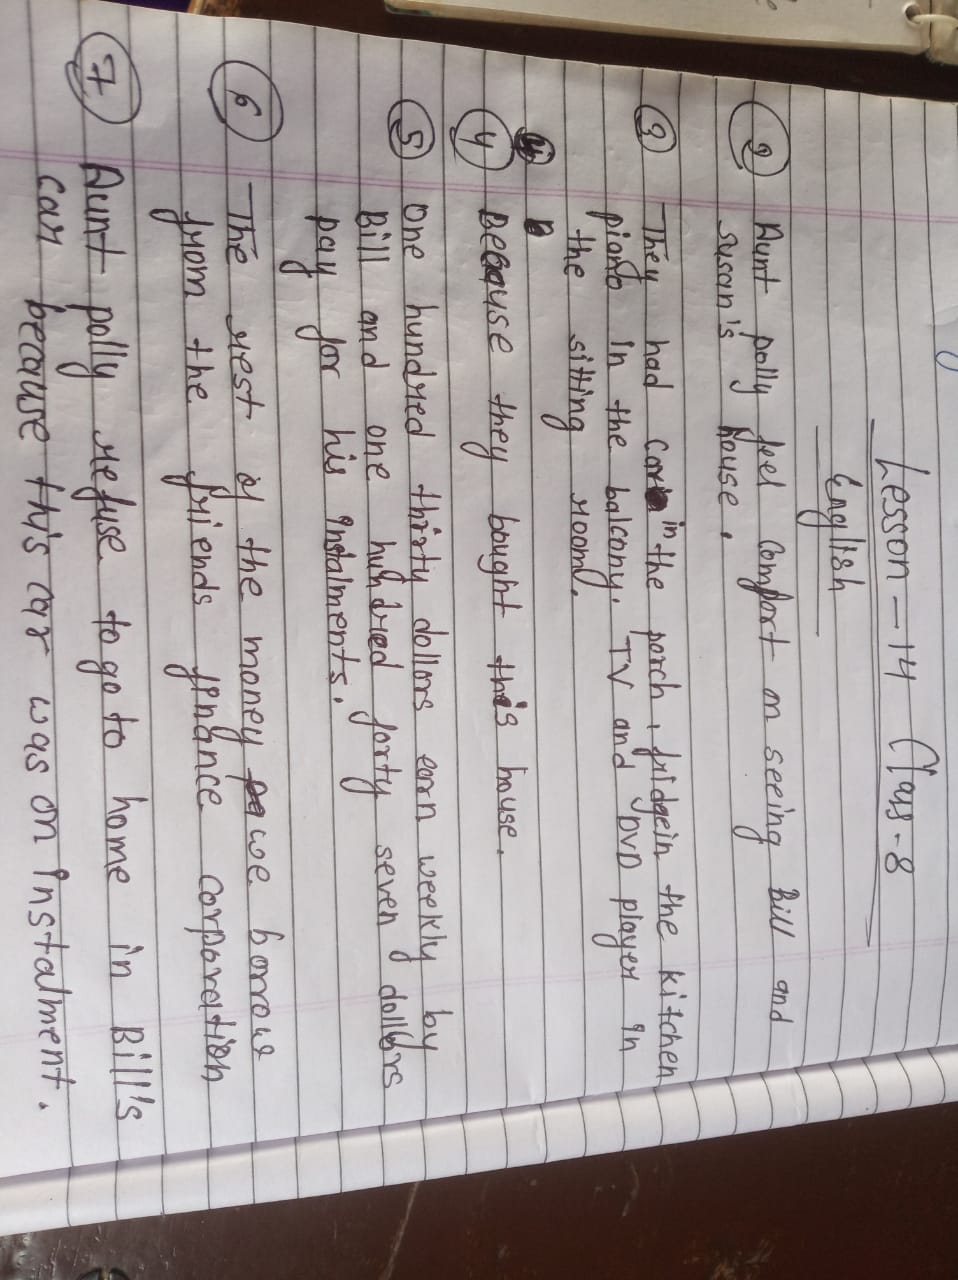 Lesson - 14 Class - 8
English
2 Aunt polly feel comfort on seeing Bill and
susan's house.
3 They had car in the porch, fridge in the kitchen
piano in the balcony. TV and DVD player in
the sitting room.
4 Because they bought this house.
5 One hundred thirty dollors earn weekly by
Bill and one hundred forty seven dollors
pay for his instalments.
6 The rest of the money we borrow
from the friends finance corporation
7 Aunt polly refuse to go to home in Bill's
car because this car was on instalment.